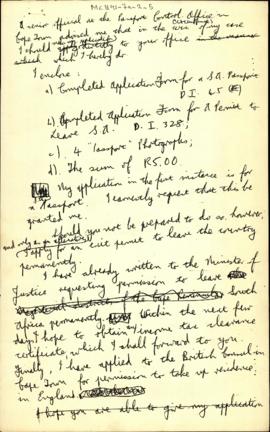 MCH91-7a-2-5
A senior official in the Passport Control Office in
Cape Town advised me that in the circumstances of my case
I should apply directly to your office
which I hereby do
I enclose:
a) Completed Application Form for a S.A. Passport
D.I. 65 (E)
b) Completed Application Form for a Permit to
Leave S.A. D.I. 328;
c) 4 "Passport" Photographs;
d) The sum of R5.00
My application in the first instance is for
a Passport. I earnestly request that this be
granted me.
Should you not be prepared to do so, however,
and only as an alternative
I apply for an exit permit to leave the country
permanently.
I have already written to the Minister of
Justice requesting permission to leave
South
Africa permanently. Within the next few
days I hope to obtain an income tax clearance
certificate, which I shall forward to you.
Finally, I have applied to the British Consul in
Cape Town for permission to take up residence
in England.
I hope you are able to give my application